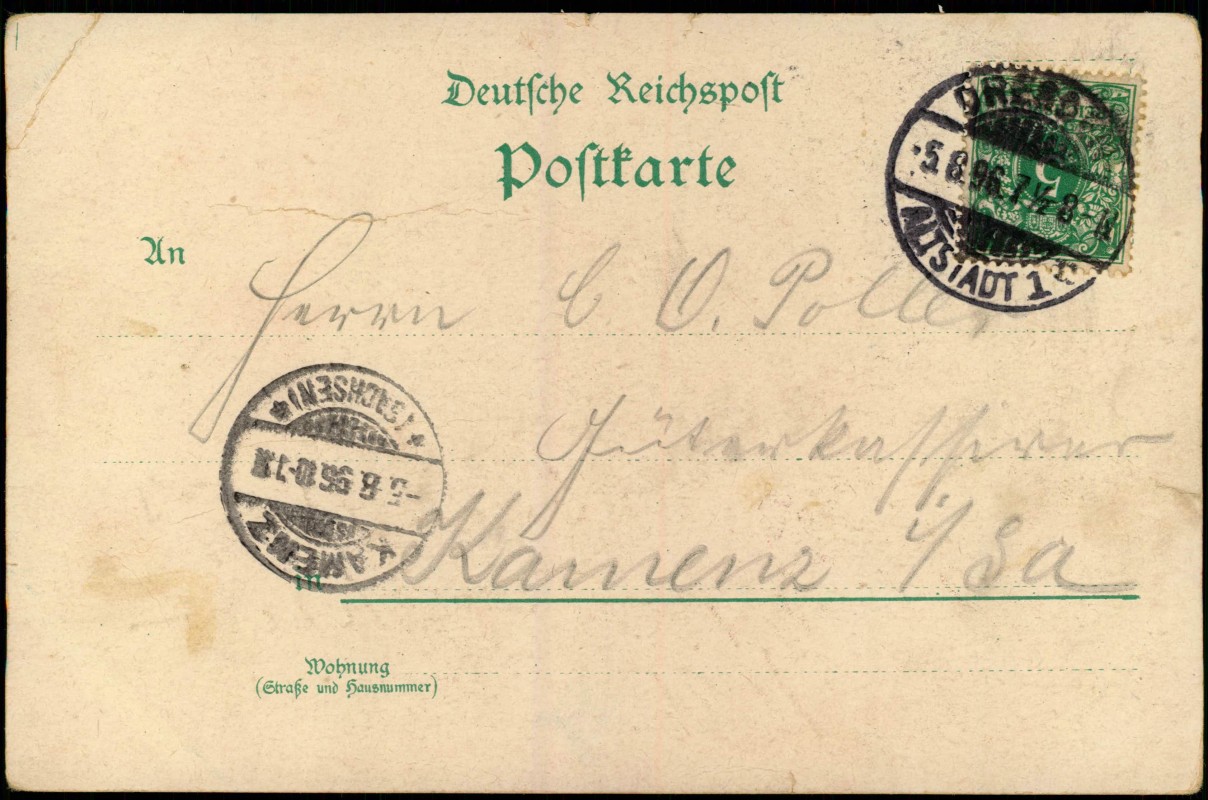 Deutsche Reichspost
Postkarte
DRESD
ALTSTADT 1
-5.8.96.7½-8-N
5
An
Herrn C O.
Güterkassirer
KAMENZ
* (SACHSEN) *
-5.8.96.10-
in Kamenz i/Sa
Wohnung
(Straße und Hausnummer)